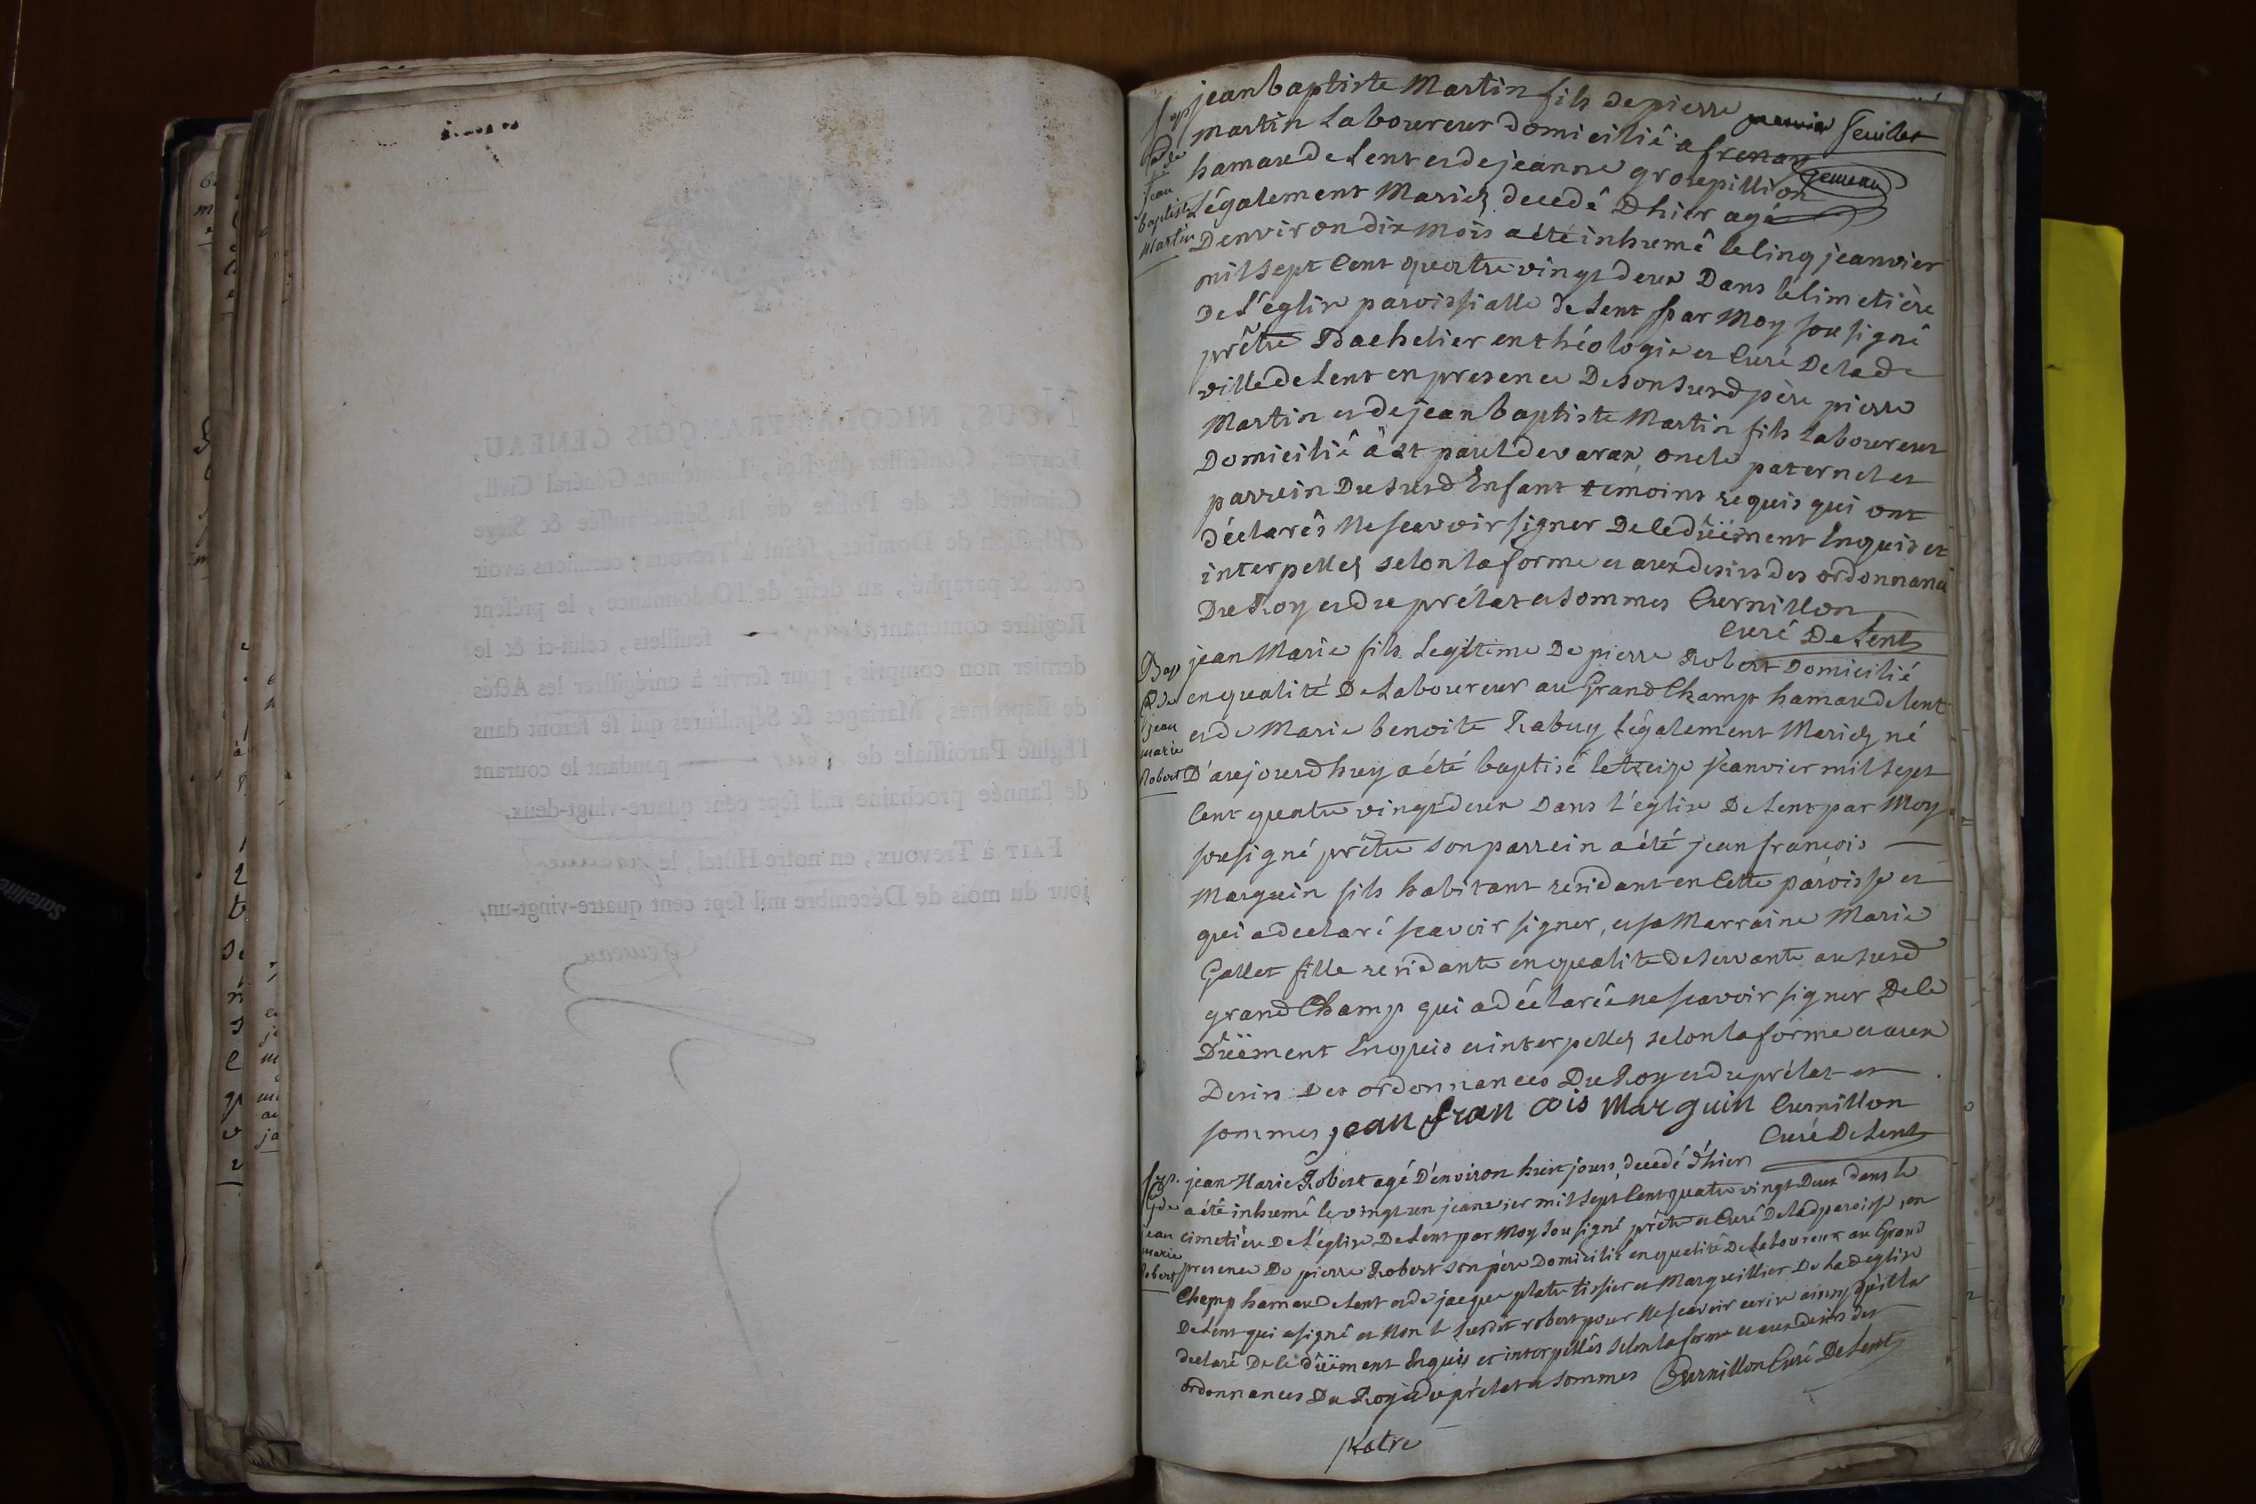 NOUS, NICOLAS FRANÇOIS GEMEAU,
Criminel & de Police de la Sénéchaussée & Siege
de Dombes, séant à Trevoux; certifions avoir
coté & paraphé, au desir de l'Ordonnance, le présent
Registre contenant feuillets, celui-ci & le
dernier non compris, pour servir à enrégistrer les Actes
de Baptêmes, Mariages & Sépultures qui se feront dans
l'Eglise Paroissiale de Lent pendant le courant
de l'année prochaine mil sept cent quatre-vingt-deux.
FAIT à Trevoux, en notre Hôtel, le
jour du mois de Décembre mil sept cent quatre-vingt-un.
Gemeau
premier feuillet
gemeau
Sep
de
jean
baptiste
Martin
jean baptiste Martin fils de pierre
Martin Laboureur domicilié a frenay
hamaude Lent et de jeanne grosepillion
Légalement Mariés decedé Dhier agé
Denviron dix Mois a été inhumé le cinq jeanvier
mil sept Cent quatre vingt deux Dans le Cimetière
De L'église paroissialle de Lent par Moy sousigné
prêtre Bachelier en théologie et Curé De lad
ville de Lent en presence De son Susd père pierre
Martin et de jean baptiste Martin fils Laboureur
Domicilié à St paul de varax, oncle paternel et
parrein Du Susd Enfant temoins requis qui ont
déclarés Ne scavoir signer De ce düëment Enquis et
interpellés selon la forme et aux desirs des ordonnances
Du Roy et du prélat et Sommes Curnillon
Curé De Lent
Bap
de
jean
marie
Robert
jean Marie fils Legitime De pierre Robert Domicilié
en qualité De Laboureur au Grand Champ hamau de Lent
et de Marie benoite Rabuy Légalement Mariés né
D'aujourdhuy a été baptisé le treize jeanvier mil Sept
Cent quatre vingt deux Dans l'église De Lent par Moy
sousigné prêtre son parrein a été jean francois
Marguin fils habitant residant en Cette paroisse et
qui a declaré scavoir signer, et sa Marraine Marie
Gallet fille residante en qualité de servante au susd
grand Champ qui a déclarée ne scavoir signer De ce
Düëment Enquis et interpellés selon la forme et aux
Desirs Des ordonnances Du Roy et du prélat et
sommes jean fran cois Marguin Curnillon
Curé De Lent
Sep.
de
jean
marie
Robert
jean Marie Robert agé D'environ huit jours, decedé d'hier
a été inhumé le vingt un jeanvier mil Sept Cent quatre vingt Deux dans le
cimetière De L'église De Lent par Moy Sousigné prêtre et Curé De lad paroisse, en
presence De pierre Robert son père Domicilié en qualité De Laboureur au Grand
Champ hamau De Lent et de jacque platre tissier et Marguillier De Lad église
De Lent qui a signé et Non le Susdit robert pour Ne scavoir ecrire ainsy qu'il la
declaré De Ce düëment Enquis et interpellés selon la forme et aux desirs des
ordonnances Du Roy et du prélat et sommes Curnillon Curé De Lent
platre